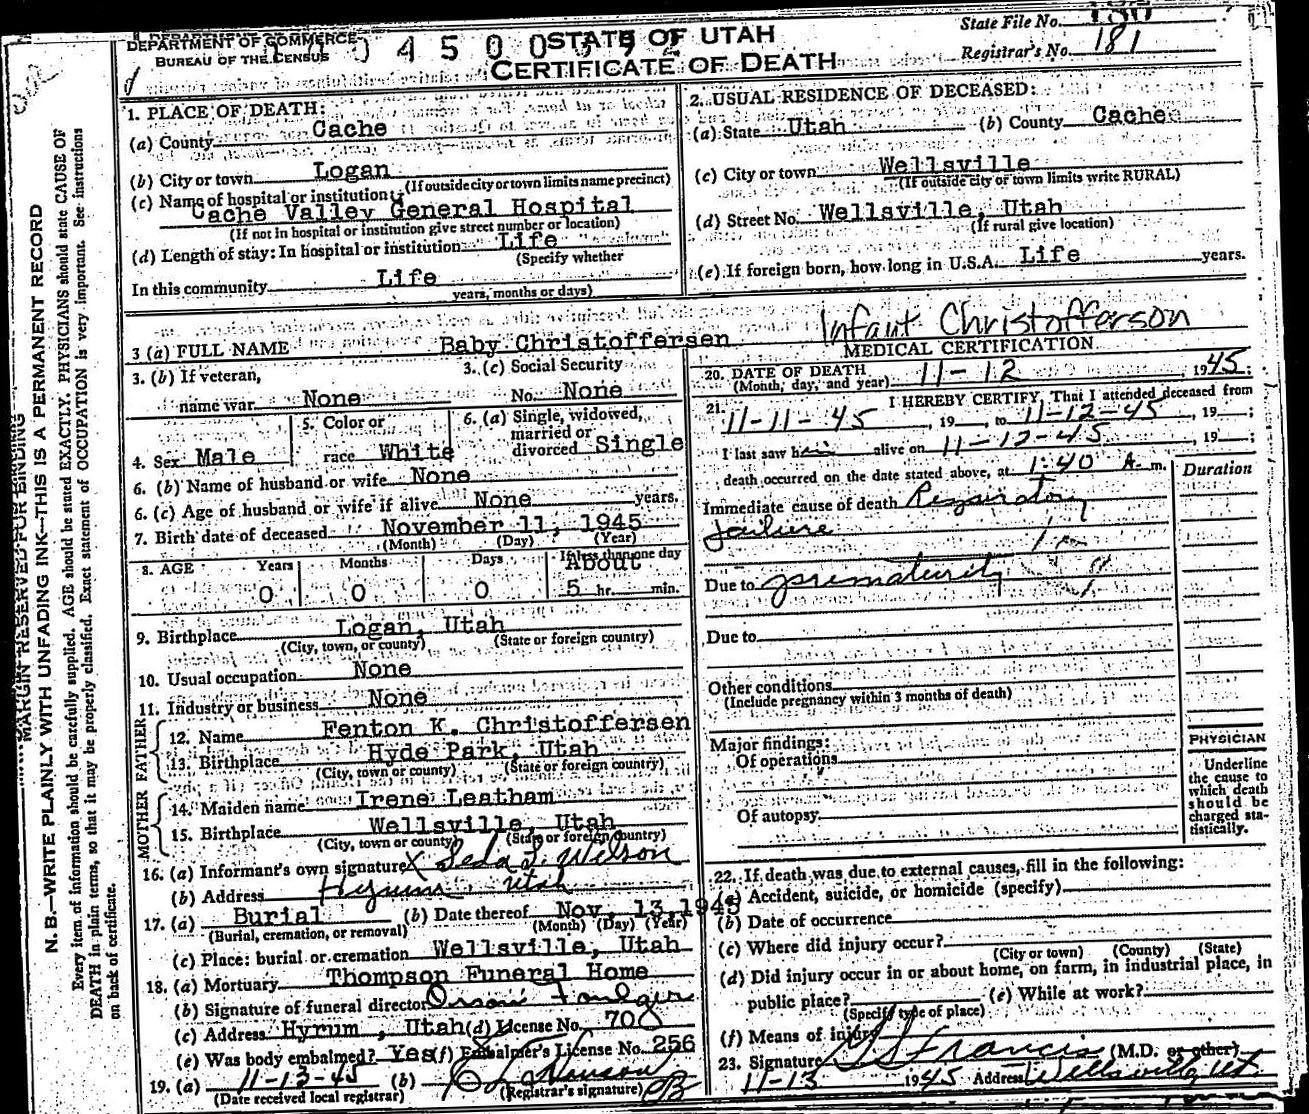 DEPARTMENT OF COMMERCE
BUREAU OF THE CENSUS
STATE OF UTAH
CERTIFICATE OF DEATH
State File No.
Registrar's No. 181
MARGIN RESERVED FOR BINDING
N. B.—WRITE PLAINLY WITH UNFADING INK—THIS IS A PERMANENT RECORD
Every item of information should be carefully supplied. AGE should be stated EXACTLY. PHYSICIANS should state CAUSE OF
DEATH in plain terms, so that it may be properly classified. Exact statement of OCCUPATION is very important. See instructions
on back of certificate.
1. PLACE OF DEATH:
(a) County Cache
(b) City or town Logan
(If outside city or town limits name precinct)
(c) Name of hospital or institution:
Cache Valley General Hospital
(If not in hospital or institution give street number or location)
(d) Length of stay: In hospital or institution Life
(Specify whether
In this community Life
years, months or days)
2. USUAL RESIDENCE OF DECEASED:
(a) State Utah (b) County Cache
(c) City or town Wellsville
(If outside city or town limits write RURAL)
(d) Street No. Wellsville, Utah
(If rural give location)
(e) If foreign born, how long in U.S.A. Life years.
3 (a) FULL NAME Baby Christoffersen Infant Christofferson
3. (b) If veteran,
name war None
3. (c) Social Security
No. None
4. Sex Male
5. Color or
race White
6. (a) Single, widowed,
married or
divorced Single
6. (b) Name of husband or wife None
6. (c) Age of husband or wife if alive None years.
7. Birth date of deceased November 11, 1945
(Month) (Day) (Year)
8. AGE Years Months Days If less than one day
About
0 0 0 5 hr. min.
9. Birthplace Logan, Utah
(City, town, or county) (State or foreign country)
10. Usual occupation None
11. Industry or business None
FATHER
12. Name Fenton K. Christoffersen
13. Birthplace Hyde Park, Utah
(City, town or county) (State or foreign country)
MOTHER
14. Maiden name Irene Leatham
15. Birthplace Wellsville, Utah
(City, town or county) (State or foreign country)
16. (a) Informant's own signature X Leda L. Wilson
(b) Address Hyrum Utah
17. (a) Burial (b) Date thereof Nov. 13, 1945
(Burial, cremation, or removal) (Month) (Day) (Year)
(c) Place: burial or cremation Wellsville, Utah
18. (a) Mortuary Thompson Funeral Home
(b) Signature of funeral director
(c) Address Hyrum, Utah (d) License No. 708
(e) Was body embalmed? Yes (f) Embalmer's License No. 256
19. (a) 11-13-45 (b)
(Date received local registrar) (Registrar's signature)
MEDICAL CERTIFICATION
20. DATE OF DEATH
(Month, day, and year) 11-12, 1945;
21. I HEREBY CERTIFY, That I attended deceased from
11-11-45, 19 , to 11-12-45, 19 ;
I last saw him alive on 11-12-45, 19 ;
death occurred on the date stated above, at 1:40 A. m.
Duration
Immediate cause of death Respiratory
failure
Due to prematurity
Due to
Other conditions
(Include pregnancy within 3 months of death)
Major findings:
Of operations
Of autopsy
PHYSICIAN
Underline
the cause to
which death
should be
charged sta-
tistically.
22. If death was due to external causes, fill in the following:
(a) Accident, suicide, or homicide (specify)
(b) Date of occurrence
(c) Where did injury occur?
(City or town) (County) (State)
(d) Did injury occur in or about home, on farm, in industrial place, in
public place? (e) While at work?
(Specify type of place)
(f) Means of injury
23. Signature Francis (M.D. or other)
11-13 1945 Address Wellsville, Ut.